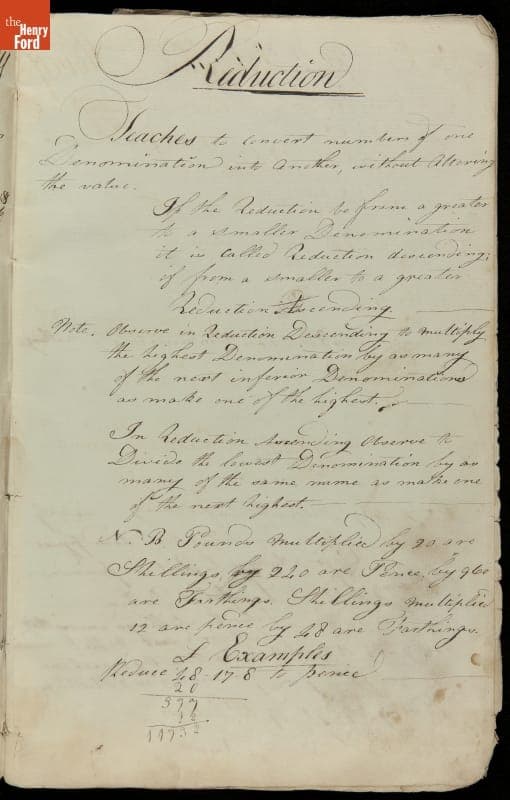 the
Henry
Ford
Reduction
Teaches to convert numbers of one
Denomination into another, without Altering
the value.
If the Reduction be from a greater
to a smaller Denomination
it is called Reduction descending;
if from a smaller to a greater
Reduction Ascending
Note. Observe in Reduction Descending to multiply
the highest Denomination by as many
of the next inferior Denominations
as make one of the highest.
In Reduction Ascending Observe to
Divide the lowest Denomination by as
many of the same name as make one
of the next highest.
N. B Pounds multiplied by 20 are
Shillings by 240 are Pence, by 960
are Farthings. Shillings multiplie
12 are pence by 48 are Farthings.
£ Examples
Reduce 48-17 8 to pence
20
977
12
11732